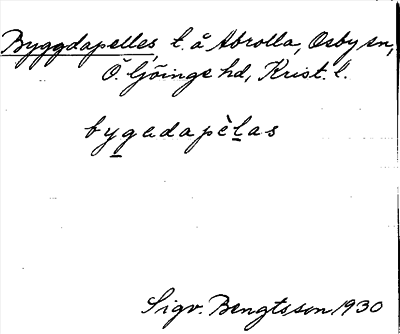 Byggdapelles t. å Abrolla, Osby sn,
Ö. Göinge hd, Krist. l.
bygadapèlas
Sigv. Bengtsson 1930